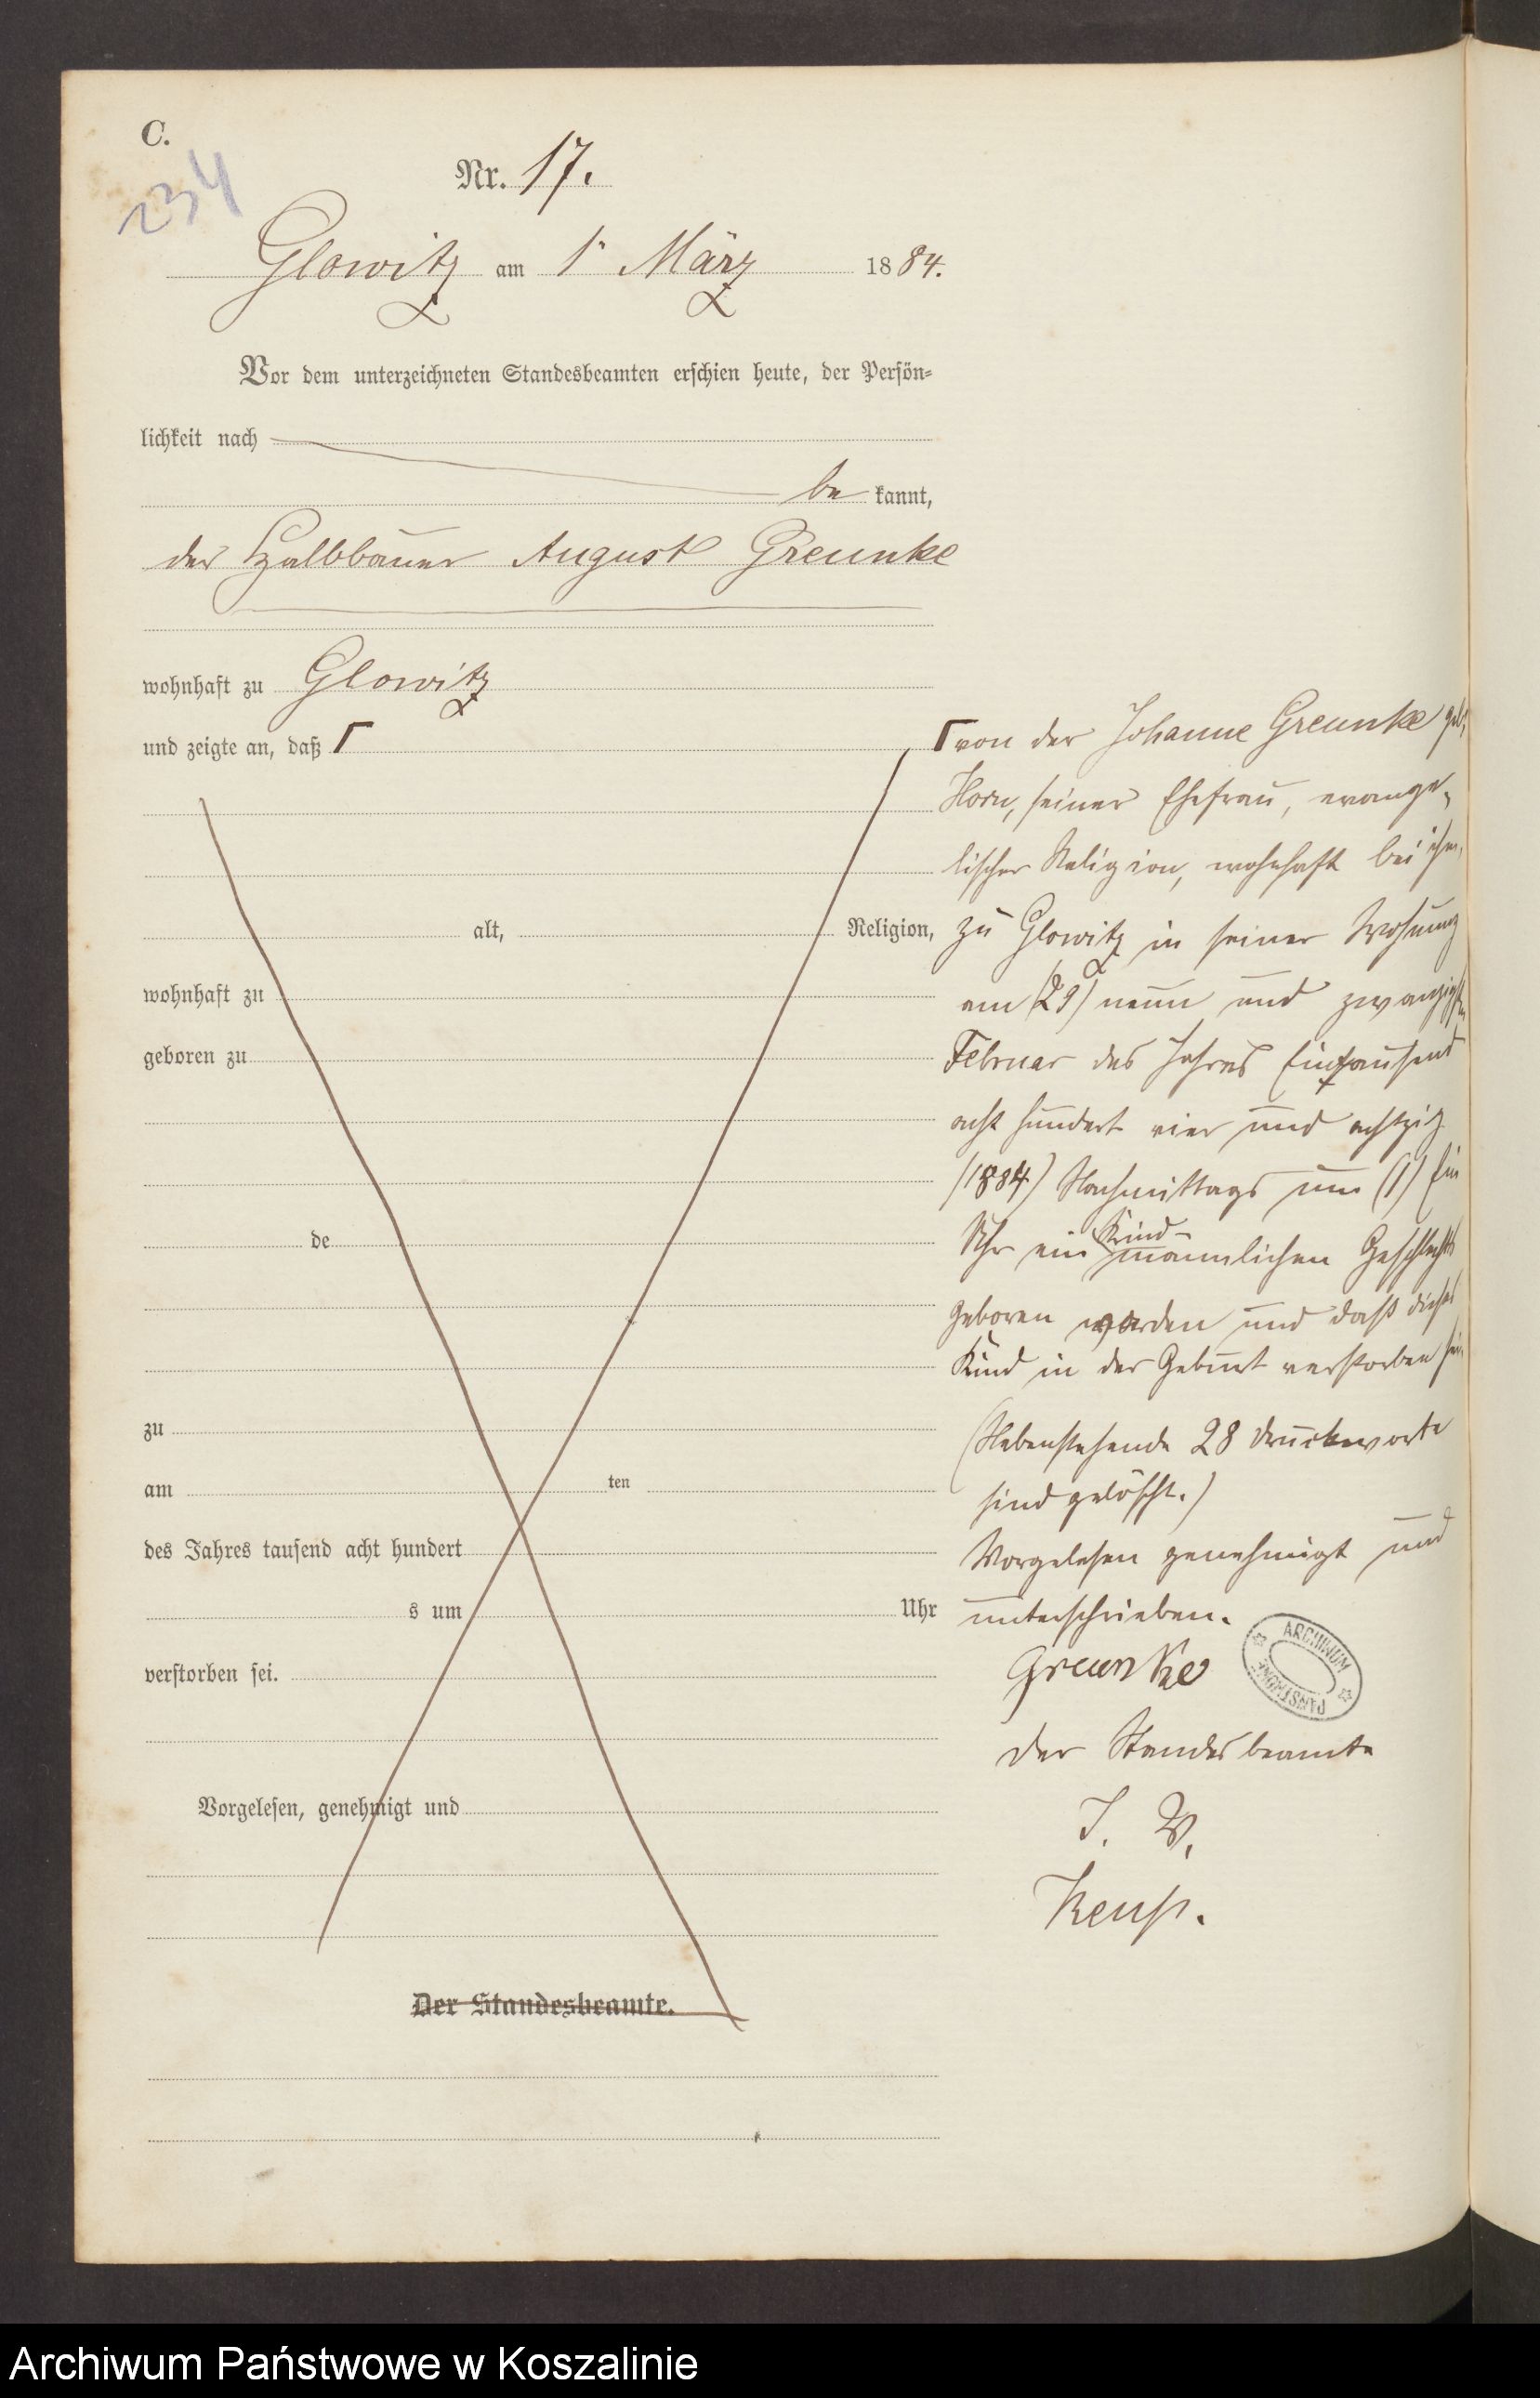 C.
234
Nr. 17.
Glowitz am 1ᵗ März 1884.
Vor dem unterzeichneten Standesbeamten erschien heute, der Persön-
lichkeit nach
be kannt,
der Halbbauer August Greunke
wohnhaft zu Glowitz
und zeigte an, daß Γ
Γ von der Johanne Greunke geb.
Horn, seiner Ehefrau, evange-
lischer Religion, wohnhaft bei ihm,
zu Glowitz in seiner Wohnung
am (29) neun und zwanzigsten
Februar des Jahres Eintausend
acht hundert vier und achtzig
(1884) Nachmittags um (1) Ein
Uhr ein Kind männlichen Geschlechts
geboren worden und daß dieses
Kind in der Geburt verstorben sei.
(Nebenstehende 28 Druckworte
sind gelöscht.)
Vorgelesen genehmigt und
unterschrieben.
Greunke
Der Standesbeamte
I. V.
alt, Religion,
wohnhaft zu
geboren zu
de
zu
am ten
des Jahres tausend acht hundert
s um Uhr
verstorben sei.
Vorgelesen, genehmigt und
Der Standesbeamte.
ARCHIWUM
PAŃSTWOWE
Archiwum Państwowe w Koszalinie